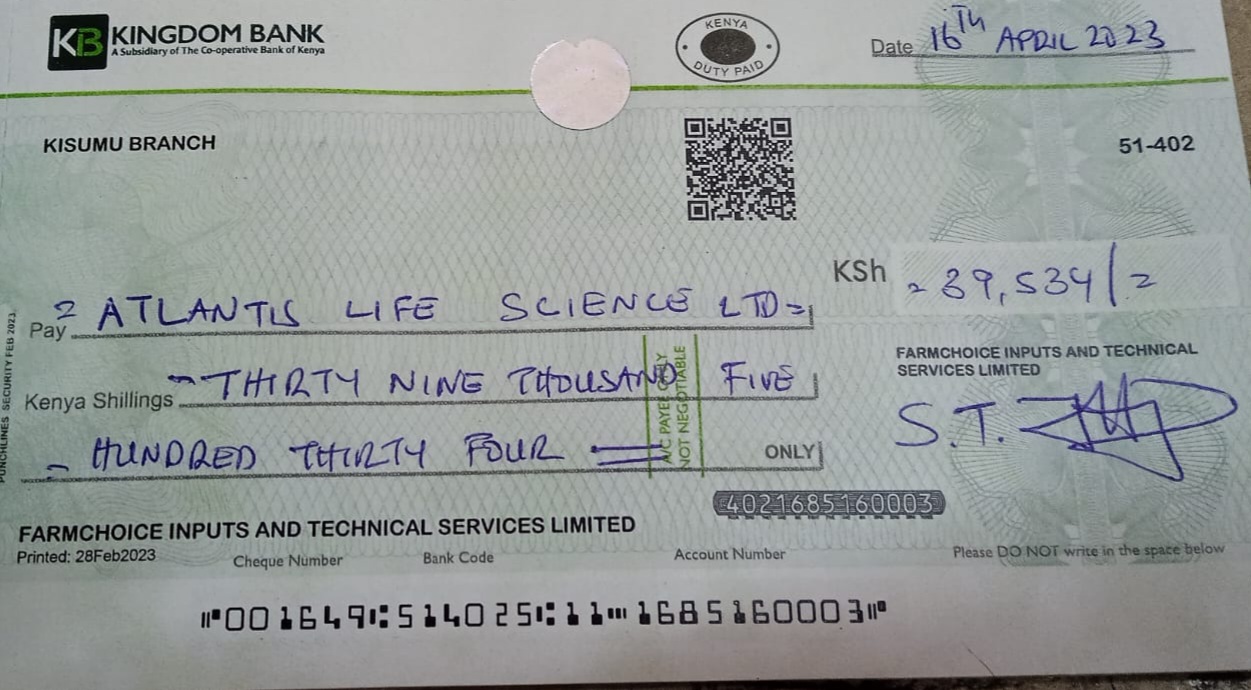 KB KINGDOM BANK
A Subsidiary of The Co-operative Bank of Kenya
KENYA
DUTY PAID
Date 16TH APRIL 2023
KISUMU BRANCH
51-402
KSh = 39,534/=
Pay = ATLANTIS LIFE SCIENCE LTD=
Kenya Shillings - THIRTY NINE THOUSAND FIVE
- HUNDRED THIRTY FOUR = ONLY
A/C PAYEE ONLY
NOT NEGOTIABLE
FARMCHOICE INPUTS AND TECHNICAL
SERVICES LIMITED
S.T.
4021685160003
FARMCHOICE INPUTS AND TECHNICAL SERVICES LIMITED
Printed: 28Feb2023
Cheque Number Bank Code Account Number Please DO NOT write in the space below
⑈001649⑆514025⑆11⑉1685160003⑈
PUNCHLINES SECURITY FEB 2023.